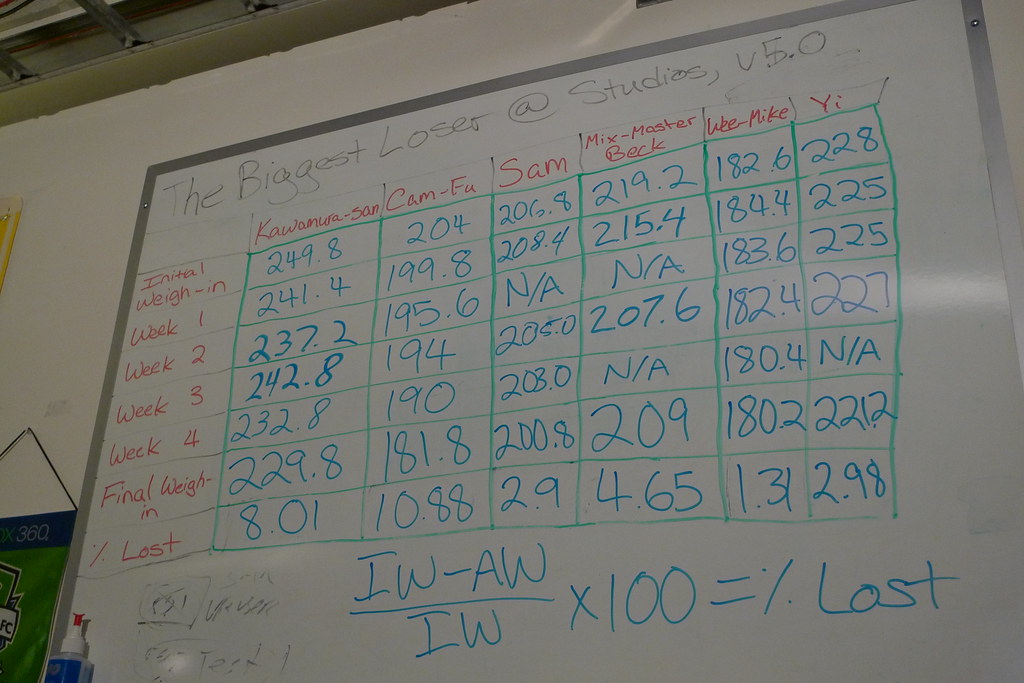 The Biggest Loser @ Studios, v5.0
Kawamura-san Cam-Fu Sam Mix-Master Beck Wee-Mike Yi
Initial Weigh-in 249.8 204 206.8 219.2 182.6 228
Week 1 241.4 199.8 208.4 215.4 184.4 225
Week 2 237.2 195.6 N/A N/A 183.6 225
Week 3 242.8 194 205.0 207.6 182.4 227
Week 4 232.8 190 203.0 N/A 180.4 N/A
Final Weigh-in 229.8 181.8 200.8 209 180.2 221.2
% Lost 8.01 10.88 2.9 4.65 1.31 2.98
IW-AW
IW
x100 = % Lost
Test 1
X360
FC